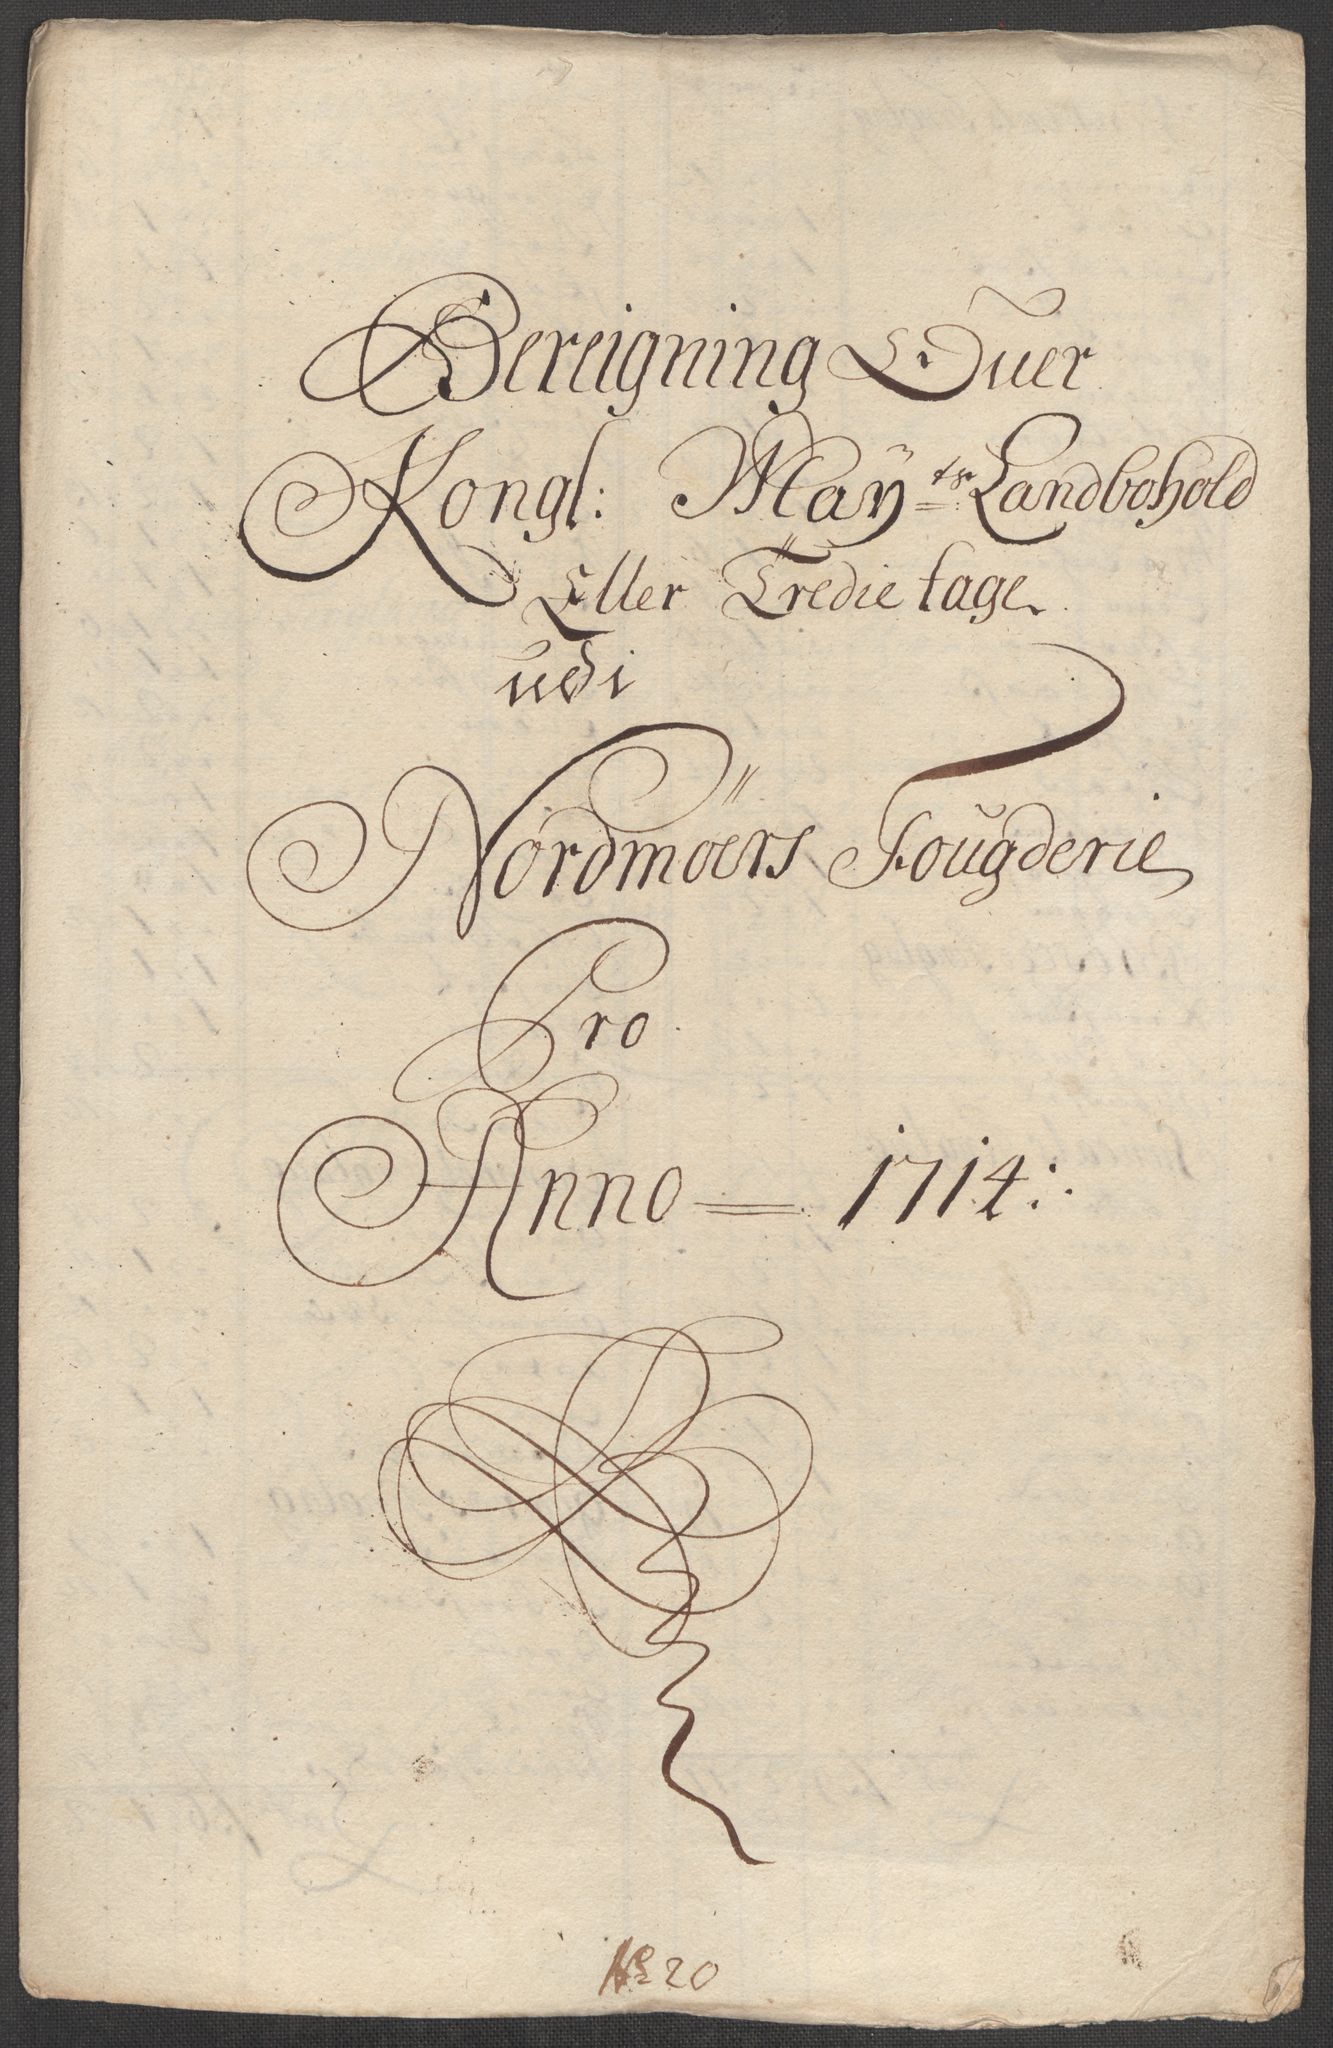 Bereigning Ofuer
Kongl: Maÿ^ts Landbohold
Eller Tredie tage
udi
Nordmöers Fougderie
Pro
Anno = 1714:
No 20